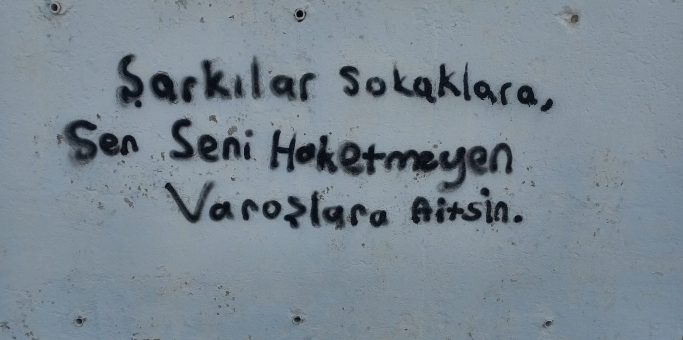 Şarkılar sokaklara,
Sen Seni Haketmeyen
Varoşlara Aitsin.